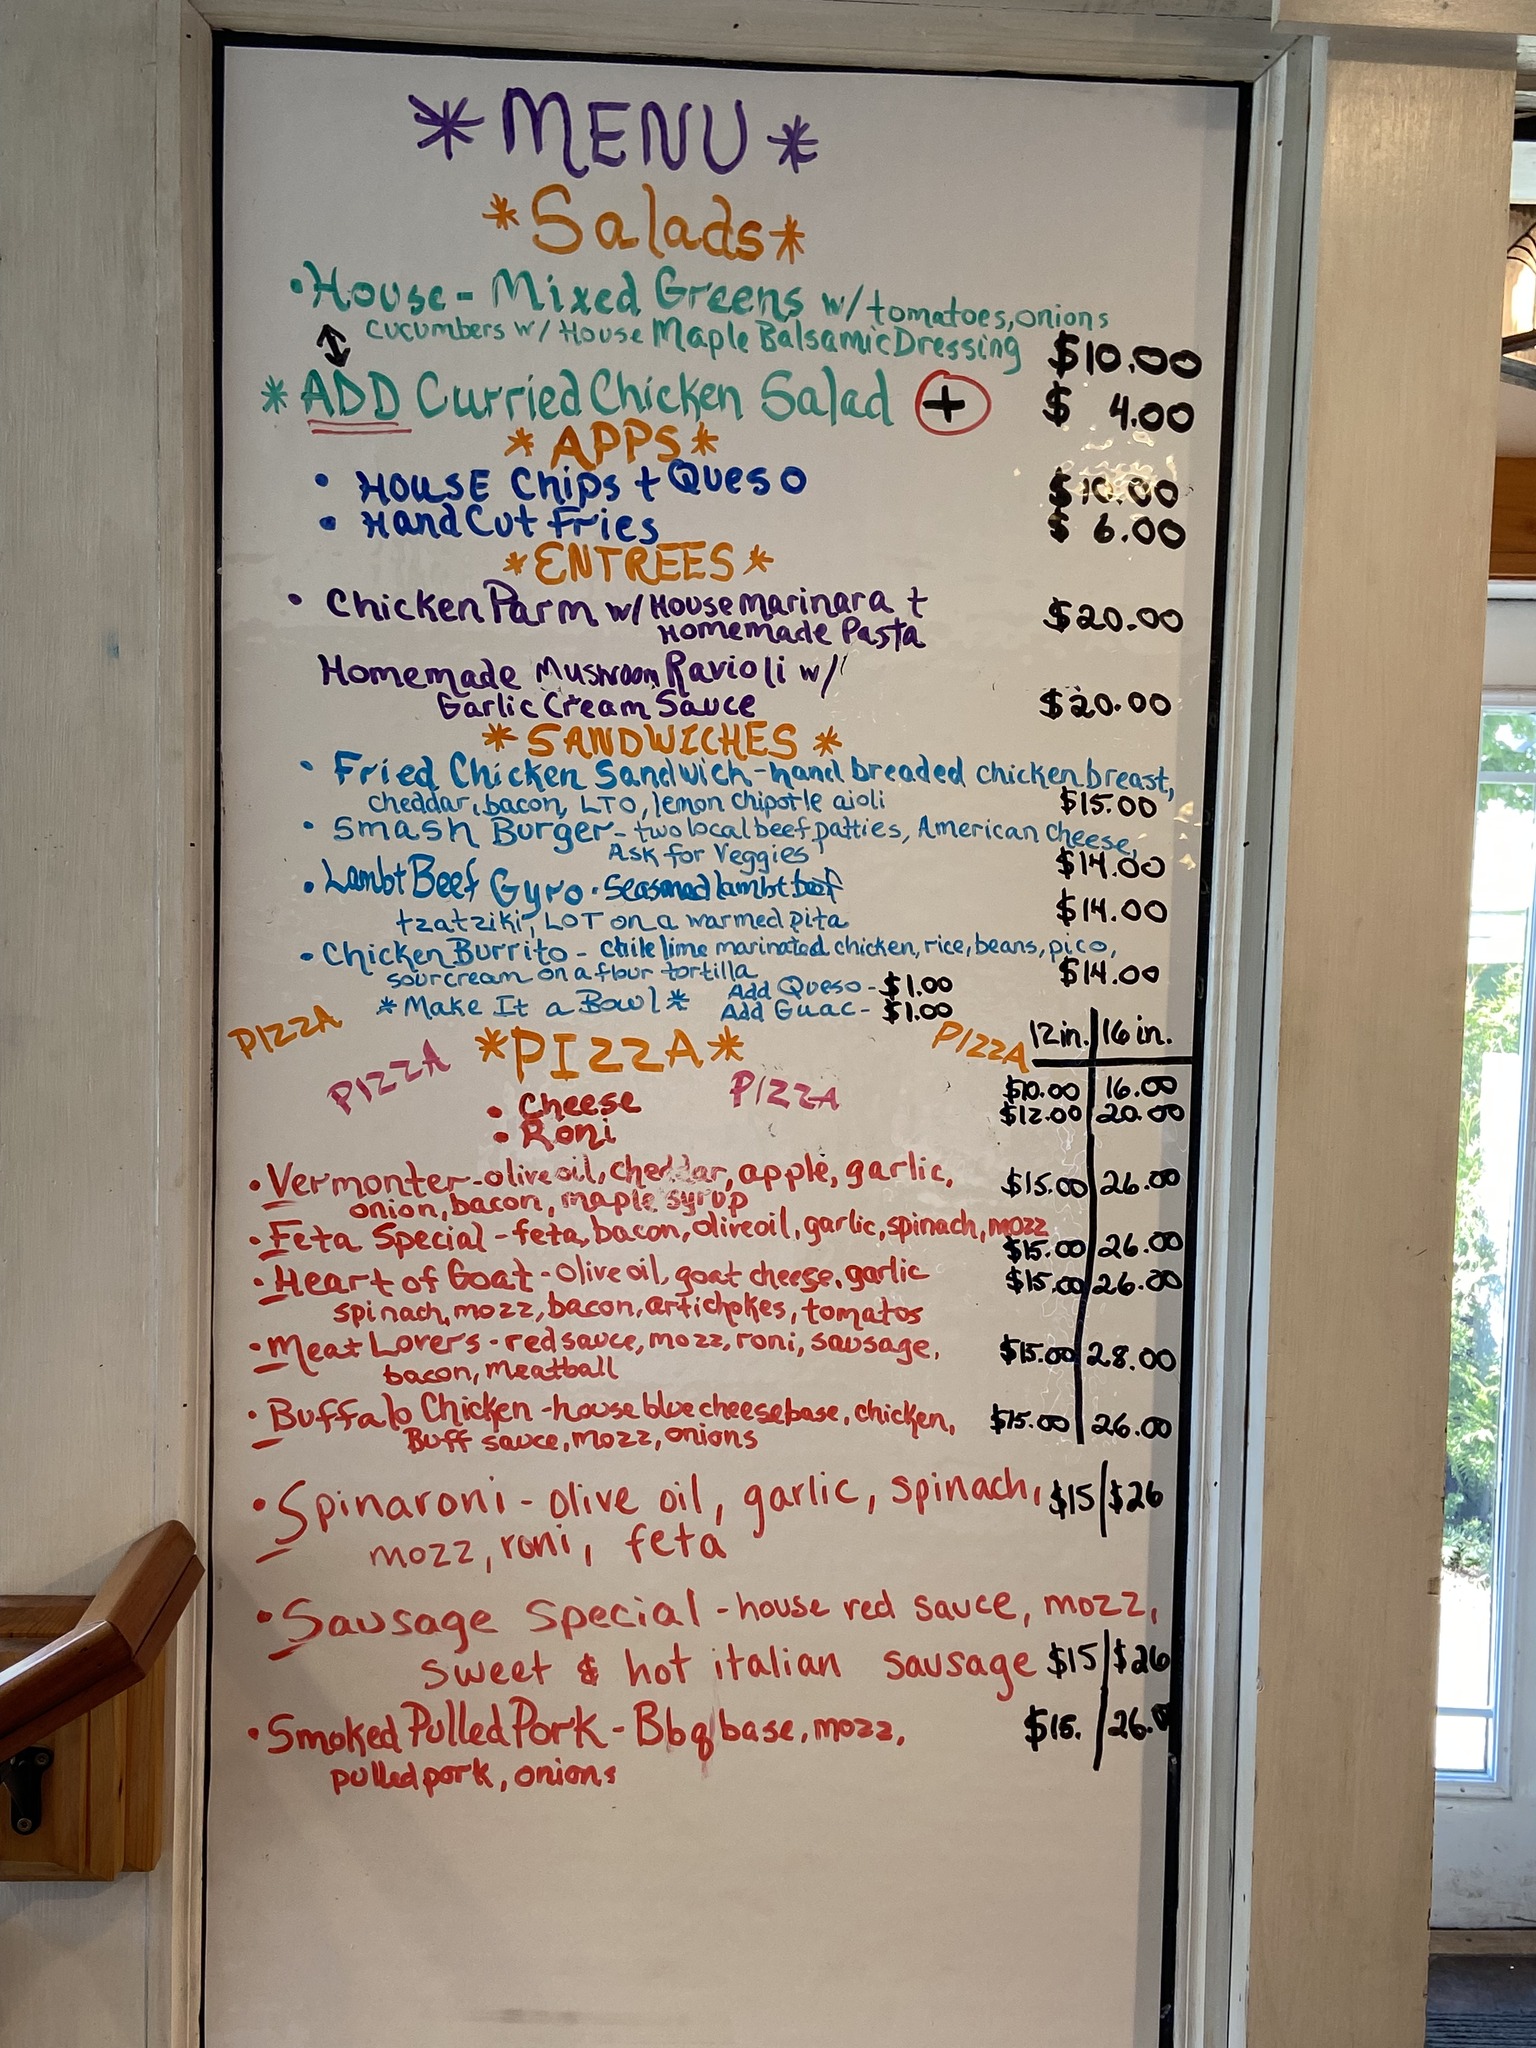 *MENU*
*Salads*
•House - Mixed Greens w/tomatoes, onions
cucumbers w/House Maple Balsamic Dressing $10.00
*ADD Curried Chicken Salad + $ 4.00
*APPS*
• House Chips + Queso $10.00
• Hand Cut Fries $ 6.00
*ENTREES*
• Chicken Parm w/House marinara + $20.00
Homemade Pasta
Homemade Mushroom Ravioli w/
Garlic Cream Sauce $20.00
*SANDWICHES*
• Fried Chicken Sandwich - hand breaded chicken breast,
cheddar, bacon, LTO, lemon chipotle aioli $15.00
• Smash Burger - two local beef patties, American Cheese,
Ask for Veggies $14.00
• Lamb+Beef Gyro - Seasoned lamb+beef
tzatziki, LOT on a warmed pita $14.00
• Chicken Burrito - chile lime marinated chicken, rice, beans, pico,
sour cream on a flour tortilla $14.00
*Make It a Bowl* Add Queso - $1.00
Add Guac - $1.00
PIZZA *PIZZA* PIZZA 12in. 16in.
PIZZA PIZZA
• Cheese $10.00 16.00
• Roni $12.00 20.00
• Vermonter - olive oil, cheddar, apple, garlic, $15.00 26.00
onion, bacon, maple syrup
• Feta Special - feta, bacon, olive oil, garlic, spinach, mozz
$15.00 26.00
• Heart of Goat - olive oil, goat cheese, garlic $15.00 26.00
spinach, mozz, bacon, artichokes, tomatos
• Meat Lovers - red sauce, mozz, roni, sausage, $15.00 28.00
bacon, meatball
• Buffalo Chicken - house blue cheese base, chicken, $15.00 26.00
Buff sauce, mozz, onions
• Spinaroni - olive oil, garlic, spinach, $15 $26
mozz, roni, feta
• Sausage Special - house red sauce, mozz,
sweet & hot italian sausage $15 $26
• Smoked Pulled Pork - Bbq base, mozz, $15. 26.0
pulled pork, onions